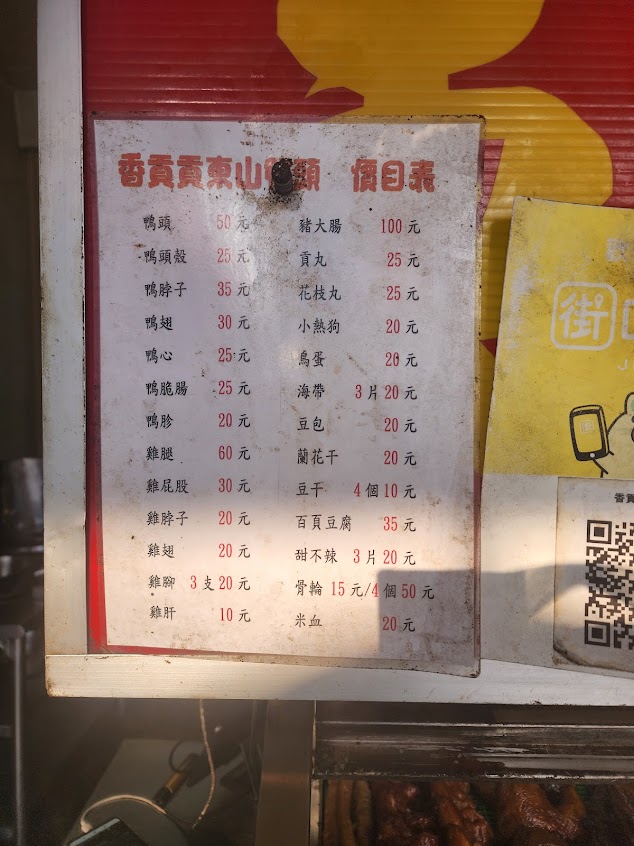 香貢貢東山鴨頭 價目表
鴨頭 50元
鴨頭殼 25元
鴨脖子 35元
鴨翅 30元
鴨心 25元
鴨脆腸 25元
鴨胗 20元
雞腿 60元
雞屁股 30元
雞脖子 20元
雞翅 20元
雞腳 3支20元
雞肝 10元
豬大腸 100元
貢丸 25元
花枝丸 25元
小熱狗 20元
鳥蛋 20元
海帶 3片20元
豆包 20元
蘭花干 20元
豆干 4個10元
百頁豆腐 35元
甜不辣 3片20元
骨輪 15元/4個50元
米血 20元
街
J
香貢